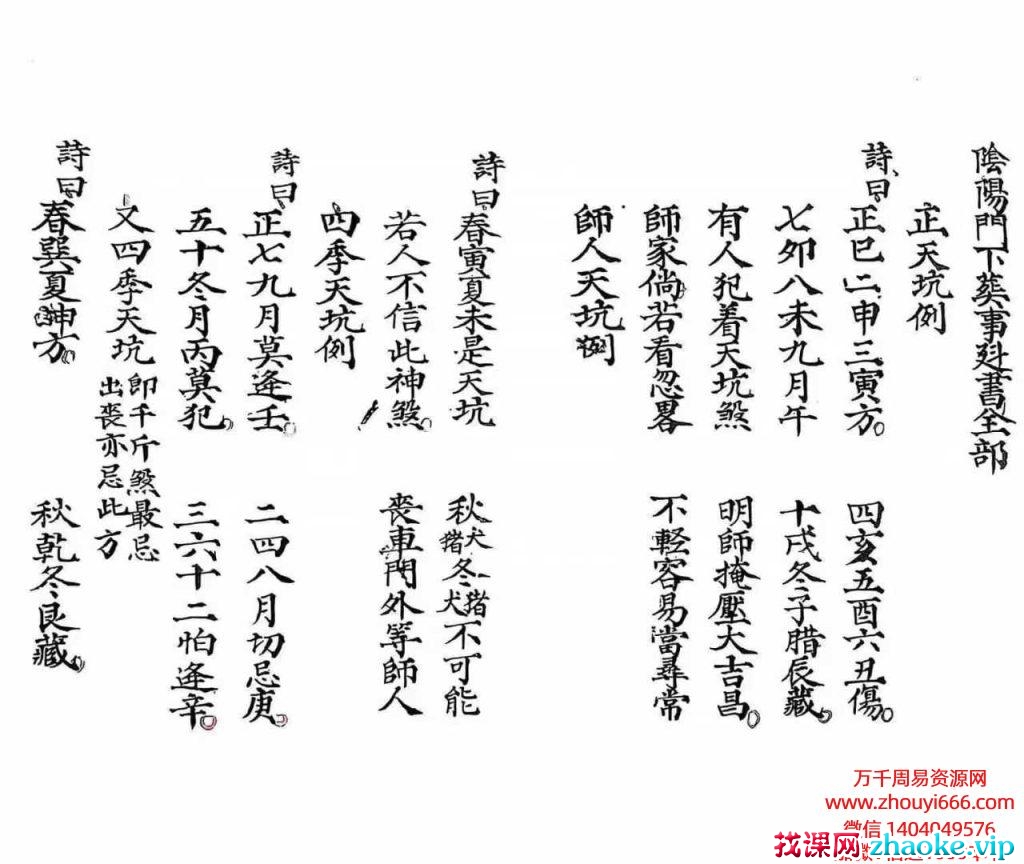 陰陽門下葬事廷書全部
正天坑例
詩曰正巳二申三寅方。 四亥五酉六丑傷。
七夘八未九月午 十戌冬子腊辰藏。
有人犯着天坑煞 明師掩壓大吉昌。
師家倘若看忽畧 不輕容易當尋常
師人天坑例
詩曰春寅夏未是天坑 秋犬猪冬猪犬不可能
若人不信此神煞。 喪車門外等師人
四季天坑例
詩曰正七九月莫逢壬。 二四八月切忌庚。
五十冬月丙莫犯。 三六十二怕逢辛。
又四季天坑 即千斤煞最忌出喪亦忌此方
詩曰春巽夏坤方。 秋乾冬艮藏。
万千周易资源网
www.zhouyi666.com
微信 1404049576
找课网zhaoke.vip